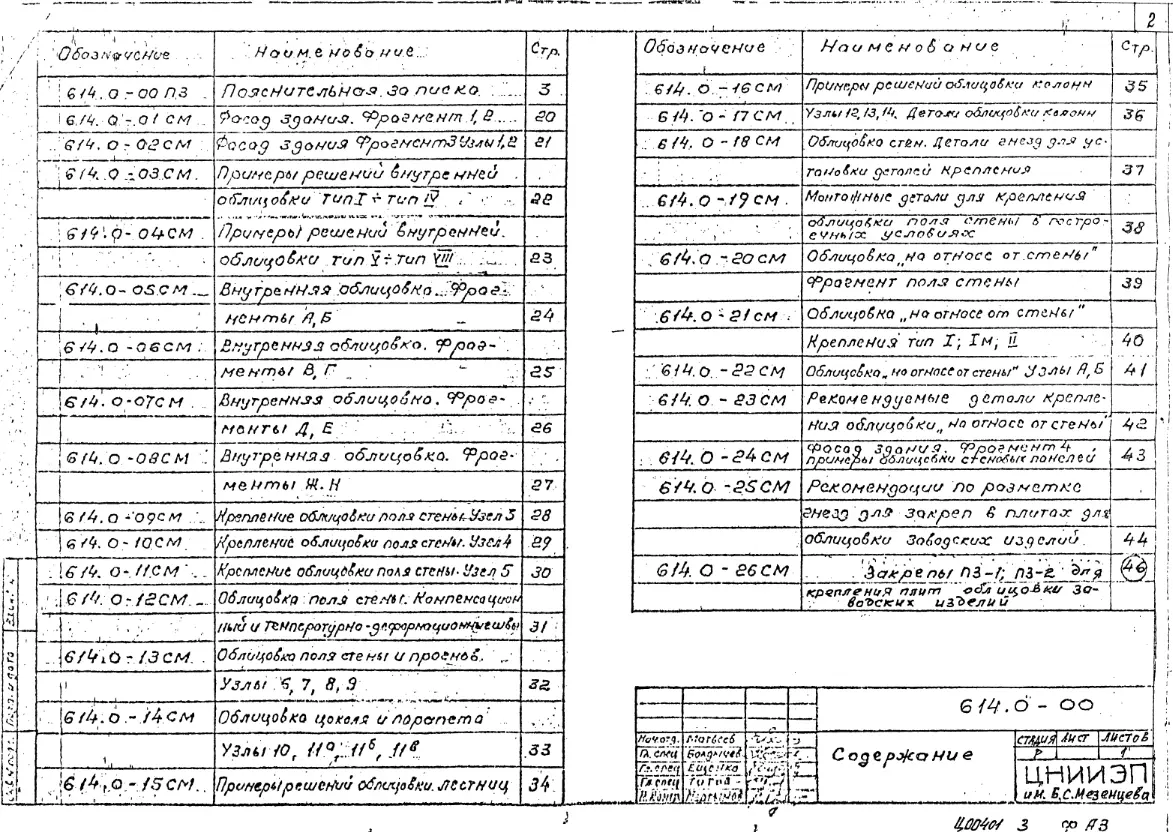 2
Обозначение Наименование Стр.
614.0-00 ПЗ Пояснительная записка. 3
614.0-01 СМ Фасад здания. Фрагмент 1,2 20
614.0-02 СМ Фасад здания Фрагмент 3 Узлы 1,2 21
614.0-03 СМ. Примеры решений внутренней
облицовки тип I ÷ тип IV 22
614.0-04 СМ Примеры решений внутренней
облицовки тип V ÷ тип VIII 23
614.0-05 СМ Внутренняя облицовка. Фраг-
менты А,Б 24
614.0-06 СМ Внутренняя облицовка. Фраг-
менты В, Г 25
614.0-07 СМ Внутренняя облицовка. Фраг-
менты Д, Е 26
614.0-08 СМ Внутренняя облицовка. Фраг-
менты Ж. Н 27
614.0-09 СМ Крепление облицовки поля стены. Узел 3 28
614.0-10 СМ Крепление облицовки поля стены. Узел 4 29
614.0-11 СМ Крепление облицовки поля стены. Узел 5 30
614.0-12 СМ Облицовка поля стены. Компенсацион
ный и температурно-деформационные швы 31
614.0-13 СМ Облицовка поля стены и проемов.
Узлы 6, 7, 8, 9 32
614.0-14 СМ Облицовка цоколя и парапета
Узлы 10, 11а, 11б, 11в 33
614.0-15 СМ. Примеры решений облицовки лестниц 34
Обозначение Наименование Стр.
614.0-16 СМ Примеры решений облицовки колонн 35
614.0-17 СМ Узлы 12,13,14. Детали облицовки колонн 36
614.0-18 СМ Облицовка стен. Детали гнезд для ус-
тановки деталей крепления 37
614.0-19 СМ Монтажные детали для крепления
облицовки поля стены в построе-
ечных условиях 38
614.0-20 СМ Облицовка „на относе от стены"
Фрагмент поля стены 39
614.0-21 СМ Облицовка „на относе от стены"
Крепления тип I; Iм; II 40
614.0-22 СМ Облицовка „на относе от стены" Узлы А,Б 41
614.0-23 СМ Рекомендуемые детали крепле-
ния облицовки „на относе от стены" 42
614.0-24 СМ Фасад здания. Фрагмент 4.
примеры облицовки стеновых панелей 43
614.0-25 СМ Рекомендации по разметке
гнезд для закреп в плитах для
облицовки заводских изделий 44
614.0-26 СМ Закрепы ПЗ-1; ПЗ-2 для 46
крепления плит облицовки за-
водских изделий
614.0-00
Нач.отд. Матвеев
Гл. спец Болдычев
Гл. спец
Гл. спец
Н.контр
Содержание
стадия Лист Листов
Р 1
ЦНИИЭП
им. Б.С.Мезенцева
Ц00401 3 ф А3